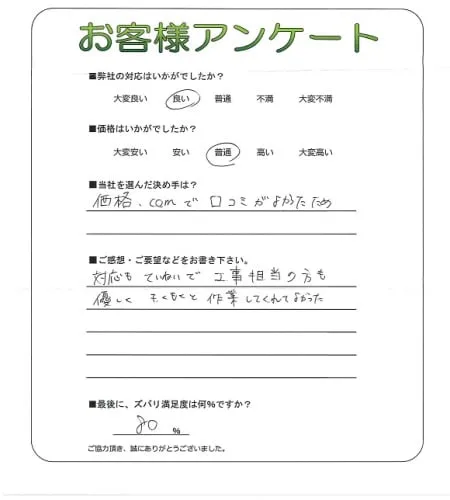 お客様アンケート
■弊社の対応はいかがでしたか？
大変良い 良い 普通 不満 大変不満
■価格はいかがでしたか？
大変安い 安い 普通 高い 大変高い
■当社を選んだ決め手は？
価格.comで口コミがよかったため
■ご感想・ご要望などをお書き下さい。
対応もていねいで工事担当の方も
優しくもくもくと作業してくれてよかった
■最後に、ズバリ満足度は何％ですか？
80 ％
ご協力頂き、誠にありがとうございました。